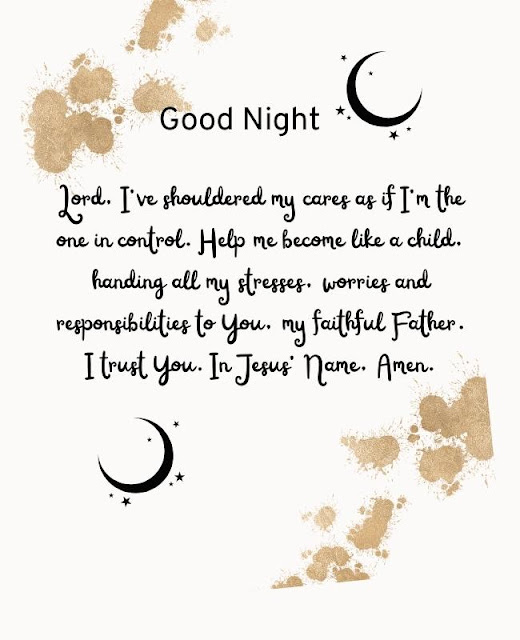 Good Night
Lord, I've shouldered my cares as if I'm the
one in control. Help me become like a child,
handing all my stresses, worries and
responsibilities to You, my faithful Father.
I trust You. In Jesus' Name, Amen.